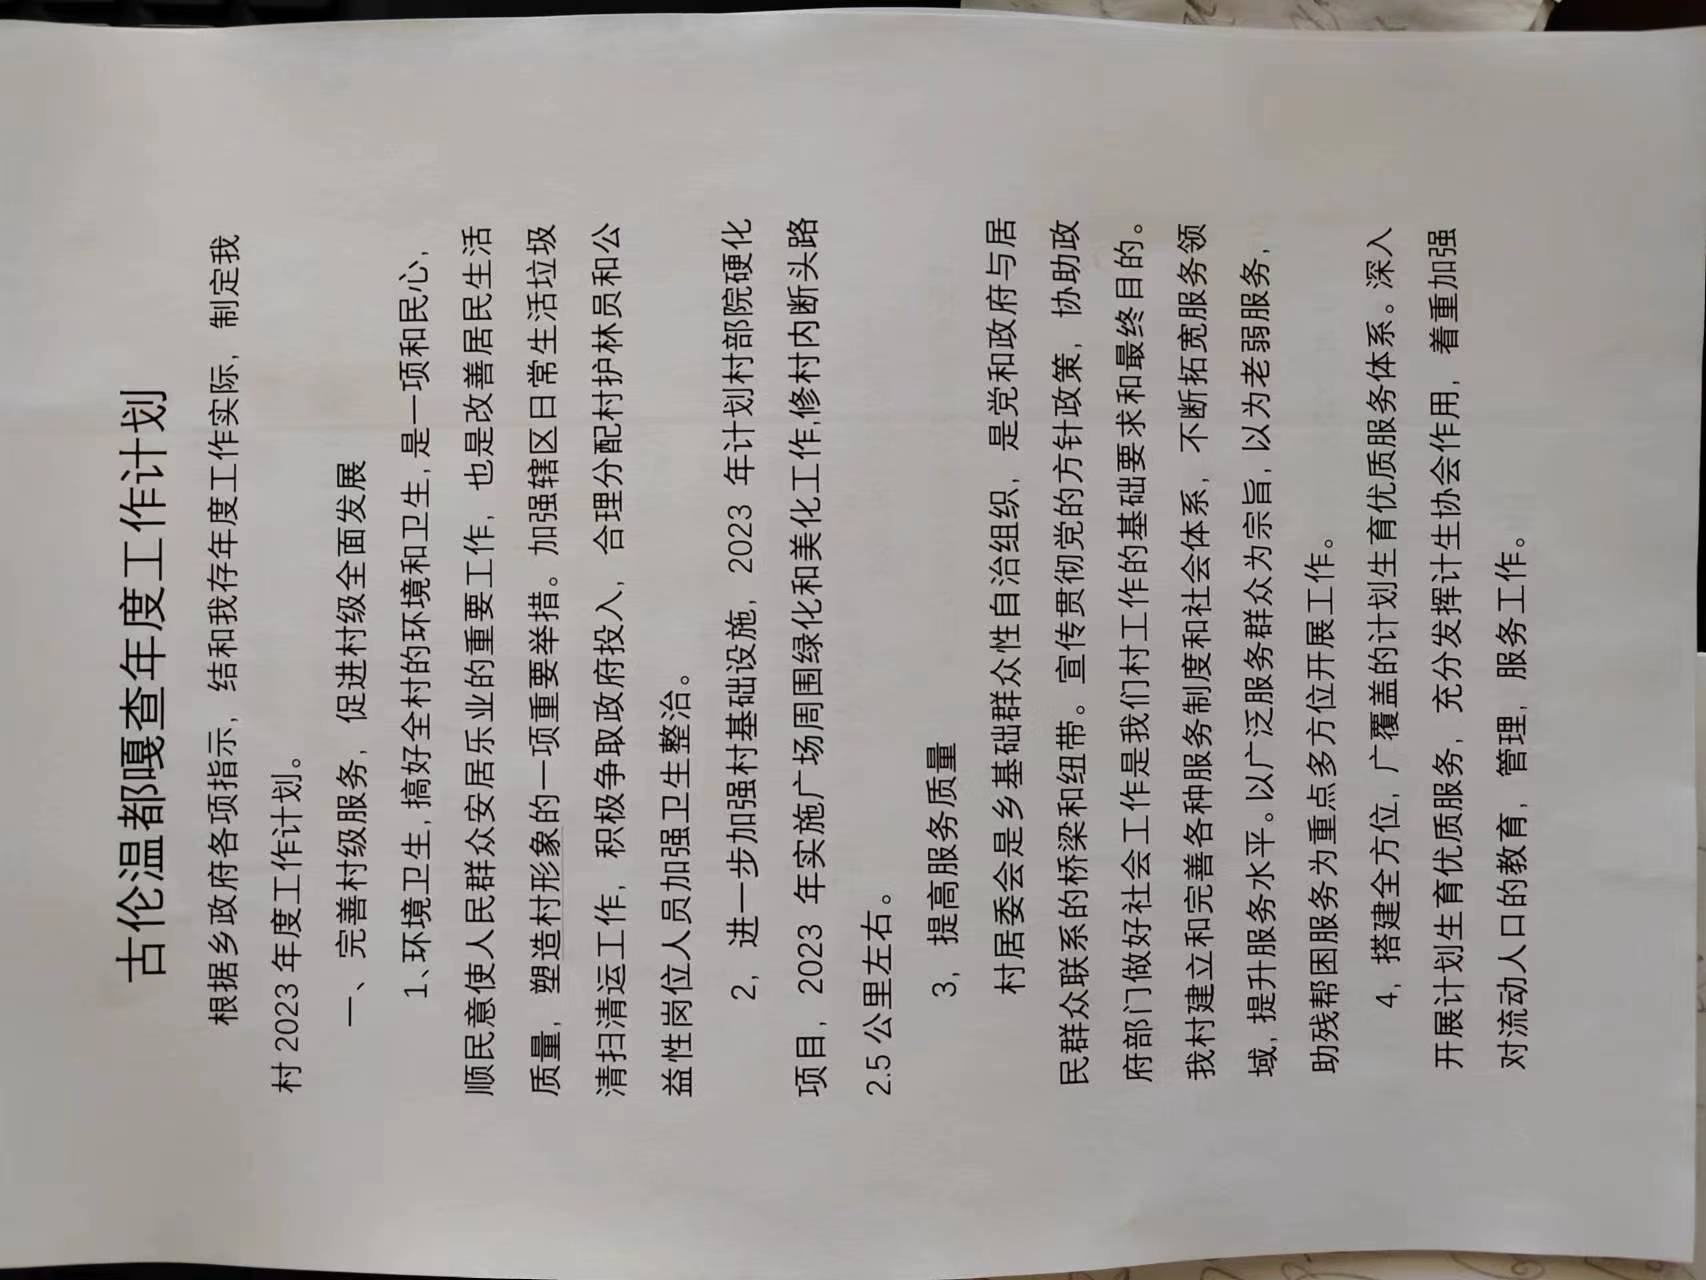 古伦温都嘎查年度工作计划
根据乡政府各项指示，结和我存年度工作实际，制定我
村 2023 年度工作计划。
一、完善村级服务，促进村级全面发展
1、环境卫生,搞好全村的环境和卫生,是一项和民心，
顺民意使人民群众安居乐业的重要工作，也是改善居民生活
质量，塑造村形象的一项重要举措。加强辖区日常生活垃圾
清扫清运工作，积极争取政府投入，合理分配村护林员和公
益性岗位人员加强卫生整治。
2，进一步加强村基础设施，2023 年计划村部院硬化
项目，2023 年实施广场周围绿化和美化工作,修村内断头路
2.5 公里左右。
3，提高服务质量
村居委会是乡基础群众性自治组织，是党和政府与居
民群众联系的桥梁和纽带。宣传贯彻党的方针政策，协助政
府部门做好社会工作是我们村工作的基础要求和最终目的。
我村建立和完善各种服务制度和社会体系，不断拓宽服务领
域,提升服务水平。以广泛服务群众为宗旨,以为老弱服务，
助残帮困服务为重点多方位开展工作。
4，搭建全方位,广覆盖的计划生育优质服务体系。深入
开展计划生育优质服务，充分发挥计生协会作用，着重加强
对流动人口的教育，管理，服务工作。